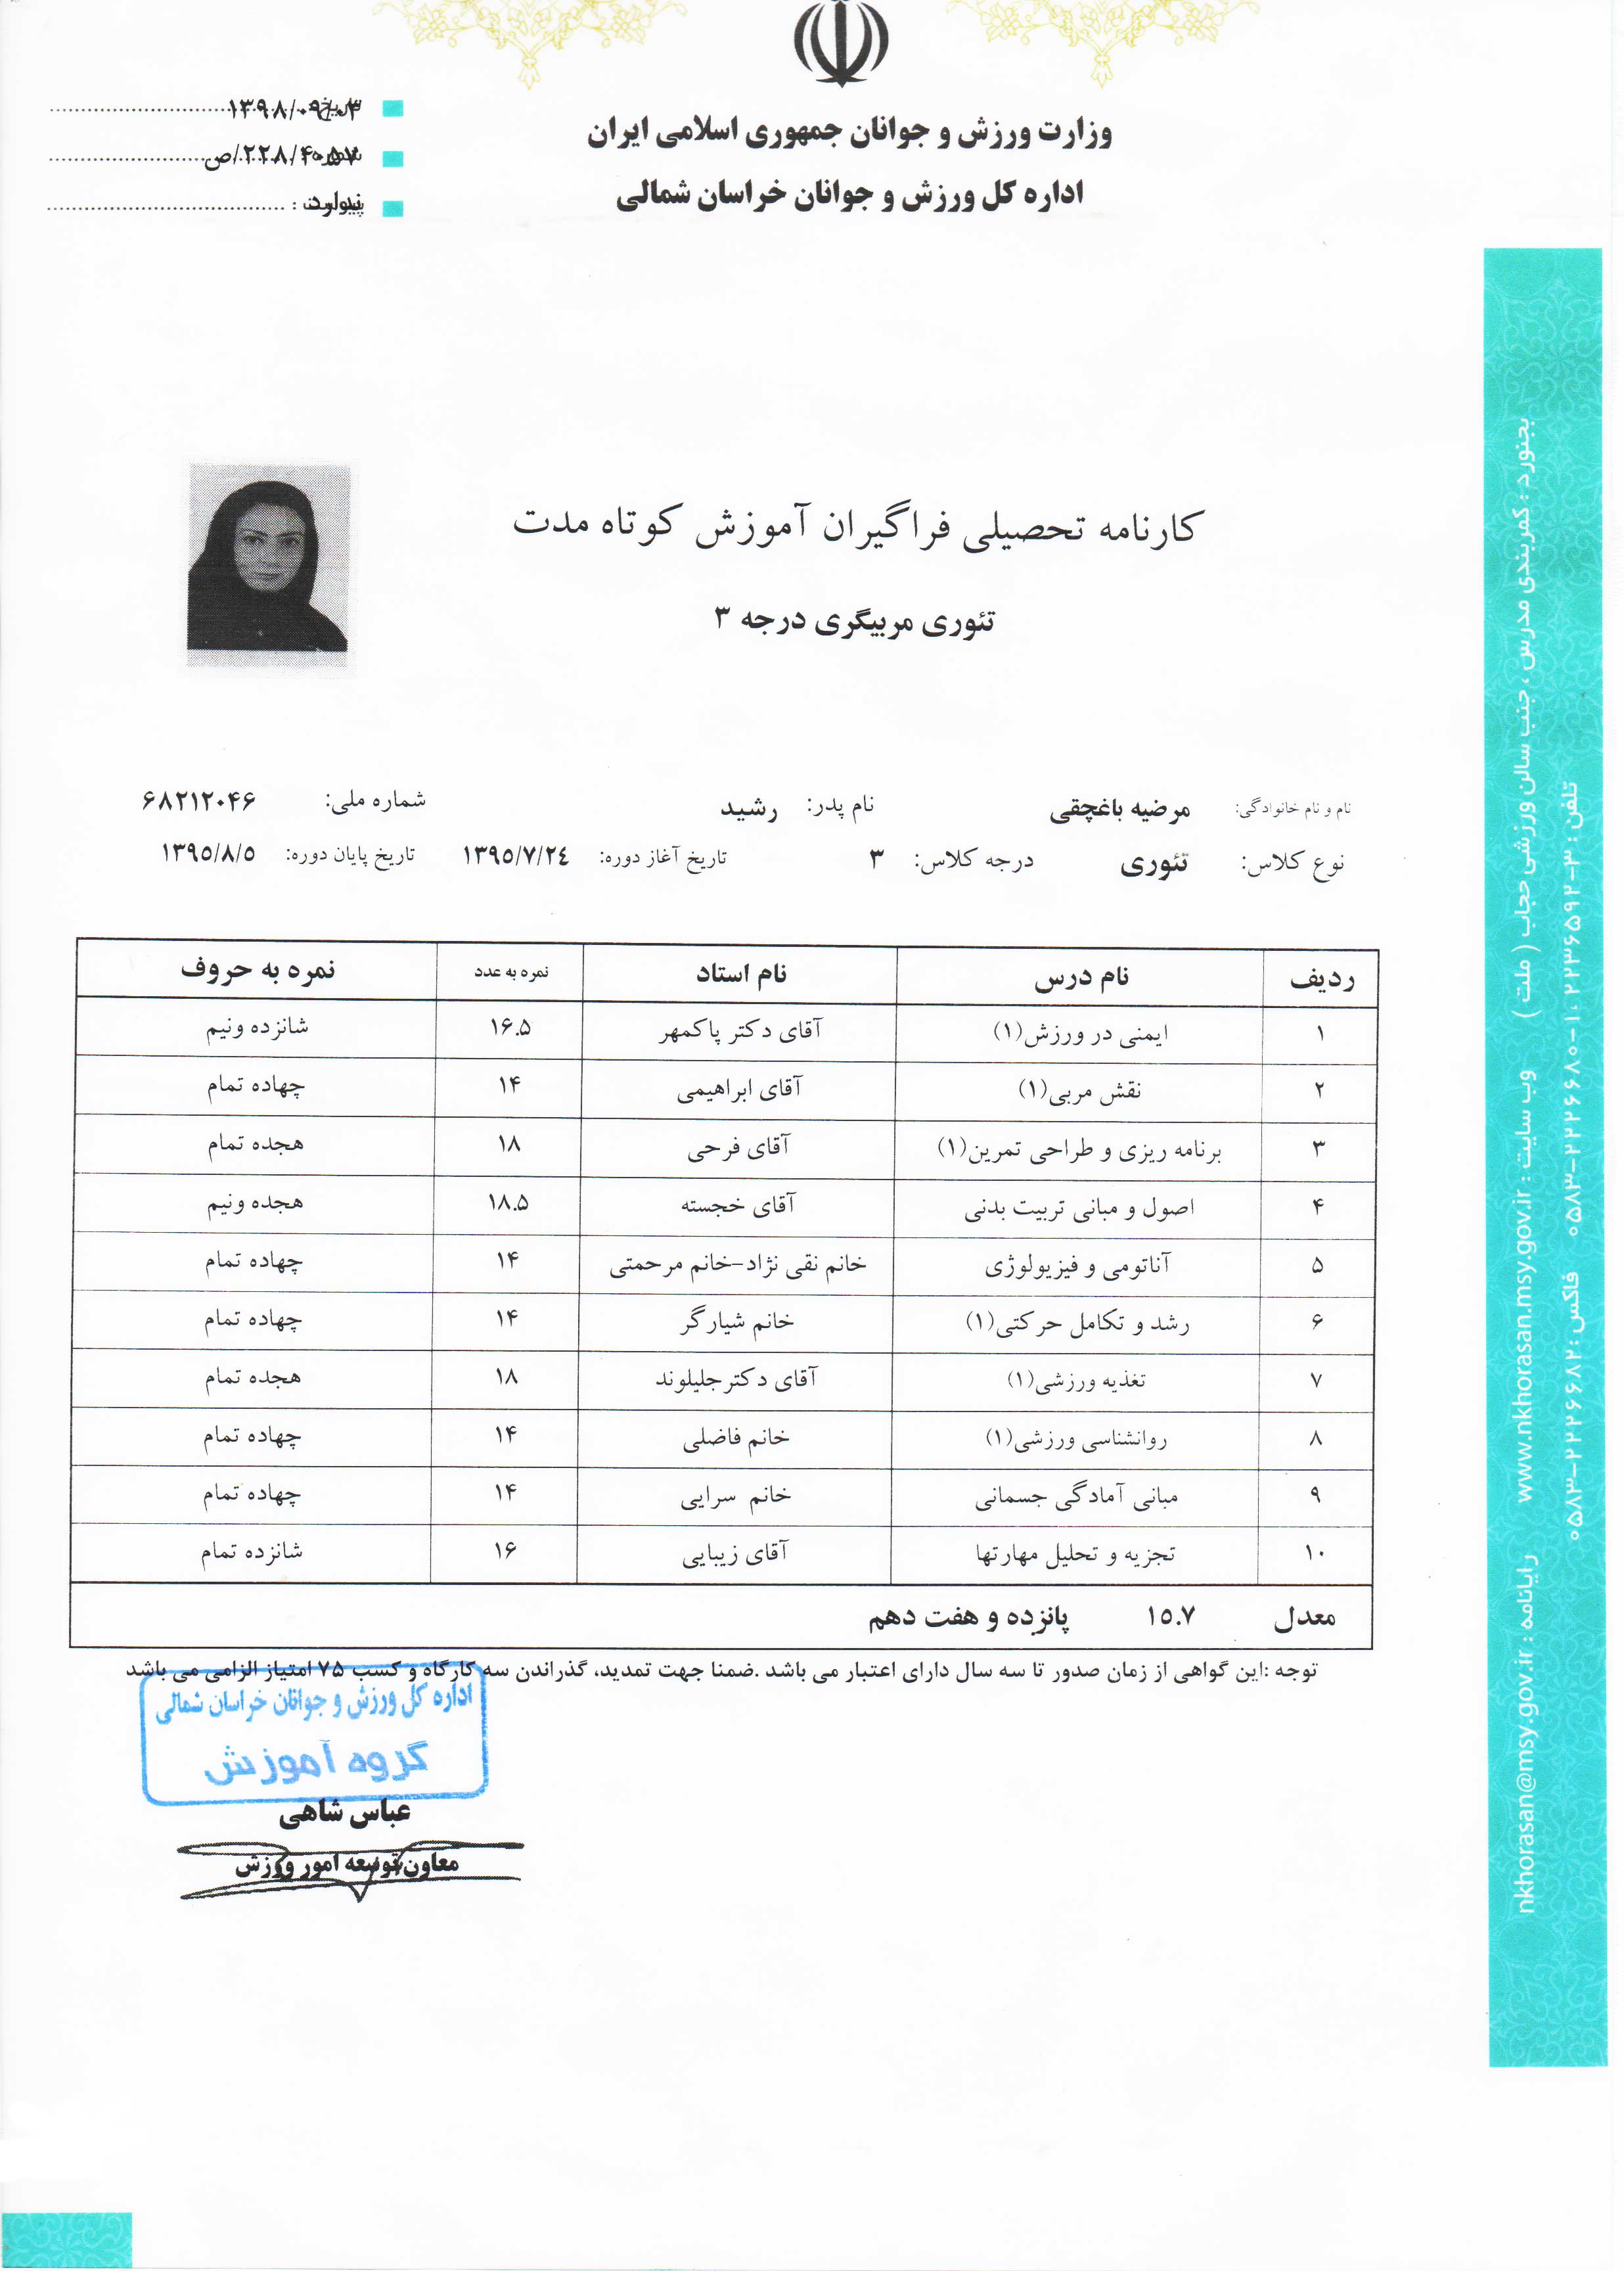 وزارت ورزش و جوانان جمهوری اسلامی ایران
اداره کل ورزش و جوانان خراسان شمالی
۱۳۹۸/۰۹/۰۳
ص/۲۲۸/۴۰۵۷
ندارد
کارنامه تحصیلی فراگیران آموزش کوتاه مدت
تئوری مربیگری درجه ۳
نام و نام خانوادگی: مرضیه باغچقی نام پدر: رشید شماره ملی: ۶۸۲۱۲۰۴۶
نوع کلاس: تئوری درجه کلاس: ۳ تاریخ آغاز دوره: ۱۳۹۵/۷/۲٤ تاریخ پایان دوره: ۱۳۹۵/۸/۵
ردیف نام درس نام استاد نمره به عدد نمره به حروف
۱ ایمنی در ورزش(۱) آقای دکتر پاکمهر ۱۶.۵ شانزده ونیم
۲ نقش مربی(۱) آقای ابراهیمی ۱۴ چهاده تمام
۳ برنامه ریزی و طراحی تمرین(۱) آقای فرحی ۱۸ هجده تمام
۴ اصول و مبانی تربیت بدنی آقای خجسته ۱۸.۵ هجده ونیم
۵ آناتومی و فیزیولوژی خانم نقی نژاد-خانم مرحمتی ۱۴ چهاده تمام
۶ رشد و تکامل حرکتی(۱) خانم شیارگر ۱۴ چهاده تمام
۷ تغذیه ورزشی(۱) آقای دکترجلیلوند ۱۸ هجده تمام
۸ روانشناسی ورزشی(۱) خانم فاضلی ۱۴ چهاده تمام
۹ مبانی آمادگی جسمانی خانم سرایی ۱۴ چهاده تمام
۱۰ تجزیه و تحلیل مهارتها آقای زیبایی ۱۶ شانزده تمام
معدل ۱۵.۷ پانزده و هفت دهم
توجه :این گواهی از زمان صدور تا سه سال دارای اعتبار می باشد .ضمنا جهت تمدید، گذراندن سه کارگاه و کسب ۷۵ امتیاز الزامی می باشد
اداره کل ورزش و جوانان خراسان شمالی
گروه آموزش
عباس شاهی
معاون توسعه امور ورزش
بجنورد : کمربندی مدرس ، جنب سالن ورزشی حجاب ( ملت ) وب سایت : www.nkhorasan.msy.gov.ir رایانامه : nkhorasan@msy.gov.ir
تلفن : ۳-۲۲۳۶۵۹۲ ، ۱-۰۵۸۳-۲۲۲۶۶۸۰ فاکس : ۰۵۸۳-۲۲۲۶۶۸۲